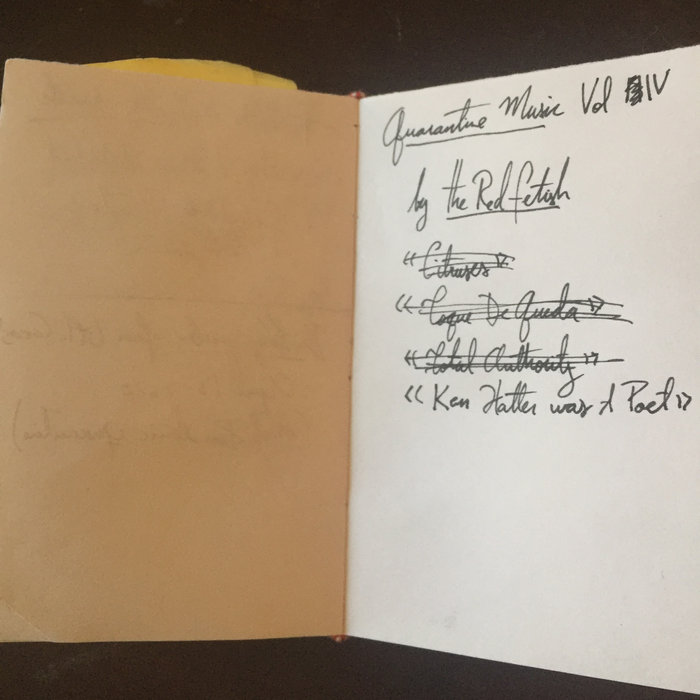 Quarantine Music Vol IV
by the Red Fetish
<< Citruses >>
<< Toque De Queda >>
<< Total Authority >>
<< Ken Hatter was A Poet >>